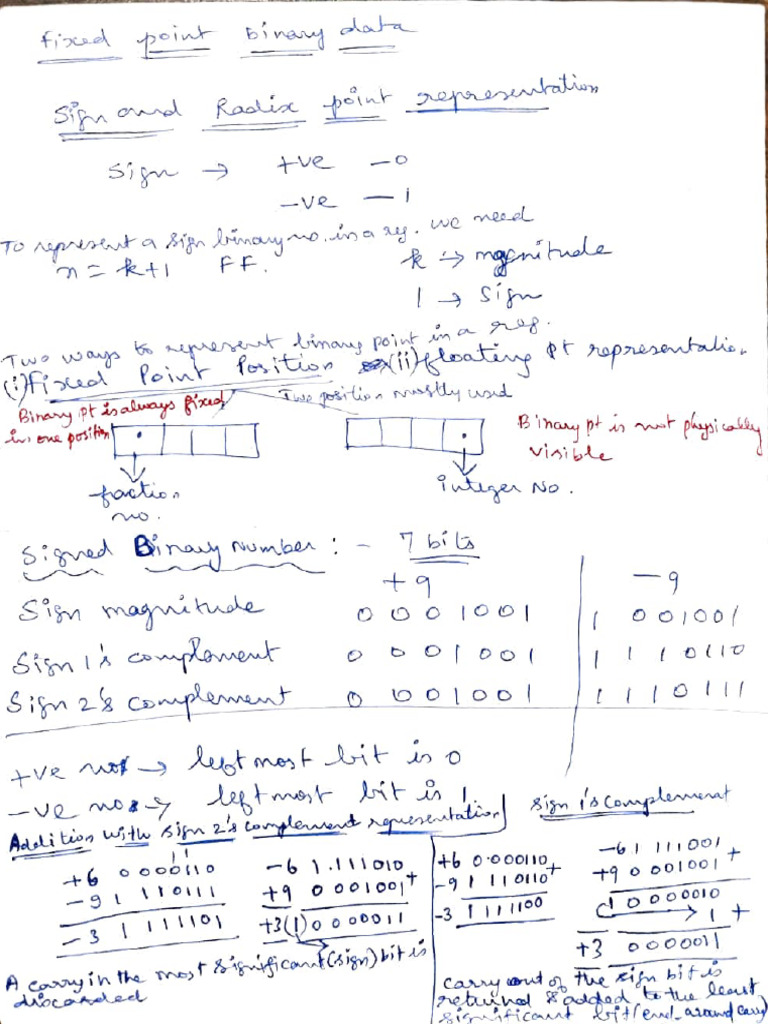 Fixed point binary data
Sign and Radix point representation
Sign → +ve — 0
-ve — 1
To represent a sign binary no. in a reg. we need
n = k+1 FF. k → magnitude
1 → Sign
Two ways to represent binary point in a reg.
(i) Fixed Point Position (ii) floating pt representation
Binary pt is always fixed
in one position
Two position mostly used
Binary pt is not physically
visible
fraction
no.
integer No.
Signed Binary Number : - 7 bits
+9 -9
Sign magnitude 0 0 0 1 0 0 1 1 0 0 1 0 0 1
Sign 1's complement 0 0 0 1 0 0 1 1 1 1 0 1 1 0
Sign 2's complement 0 0 0 1 0 0 1 1 1 1 0 1 1 1
+ve nos → leftmost bit is 0
-ve nos → leftmost bit is 1
Addition with sign 2's complement representation
1 1
+6 0 000110
-9 1 110111
-3 1 111101
-6 1.111010
+9 0 001001 +
+3 (1) 0 000011
A carry in the most significant (sign) bit is
discarded
Sign 1's complement
+6 0.000110 +
-9 1 110110
-3 1 111100
-6 1 111001
+9 0 001001 +
1 0 000010
→ 1 +
+3 0000011
carry out of the sign bit is
returned & added to the least
significant bit (end_around carry)